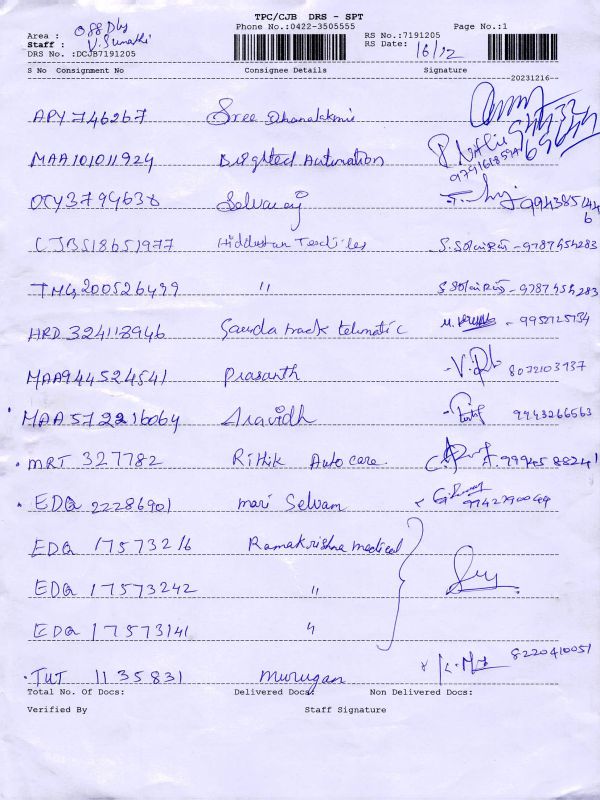 TPC/CJB DRS - SPT
Phone No.:0422-3505555 Page No.:1
Area : Off Dly
Staff : V. Sumathi
RS No.:7191205
RS Date: 16/12
DRS No. :DCJB7191205
S No Consignment No Consignee Details Signature
20231216
APY 746267 Sree Dhanalakmi
MAA101011924 Brighted Automation
OTY3794638 Selvaraj
CJBS18651977 Hindustan Textiles S. - 9787454283
TMG200526499 " S - 9787454283
HRD 324118946 Gowda track telmatic M. - 9952125734
MAA944524541 Prasanth 8072103737
MAA572216064 Aravidh 9943266563
MRT 327782 Rithik Auto care
EDQ 22286901 mari Selvam
EDQ 17573216 Ramakrishna medical
EDQ 17573242 "
EDQ 17573141 "
TUT 1135831 murugan 8220410051
Total No. Of Docs: Delivered Docs: Non Delivered Docs:
Verified By Staff Signature